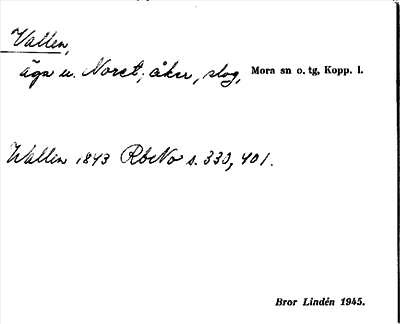 Vallen,
äga u. Noret; åker, slog, Mora sn o. tg, Kopp. l.
Wallen 1843 RbNo s. 330, 401.
Bror Lindén 1945.